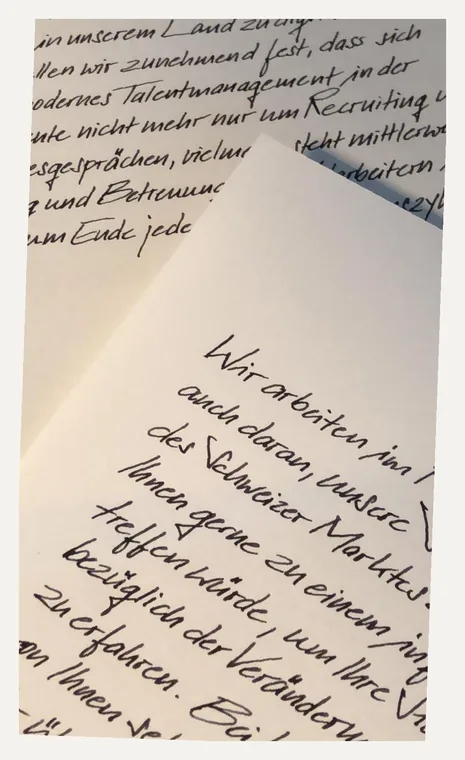 in unserem Land zu
llen wir zunehmend fest, dass sich
odernes Talentmanagement in der
nte nicht mehr nur um Recruiting
esgesprächen, vielme steht mittlerwe
g und Betreuung arbeitern
um Ende jede szy
Wir arbeiten im
auch daran, unsere
des Schweizer Marktes
Ihnen gerne zu einem inf
treffen würde, um Ihre
bezüglich der Veränderu
zu erfahren. Bei
on Ihnen